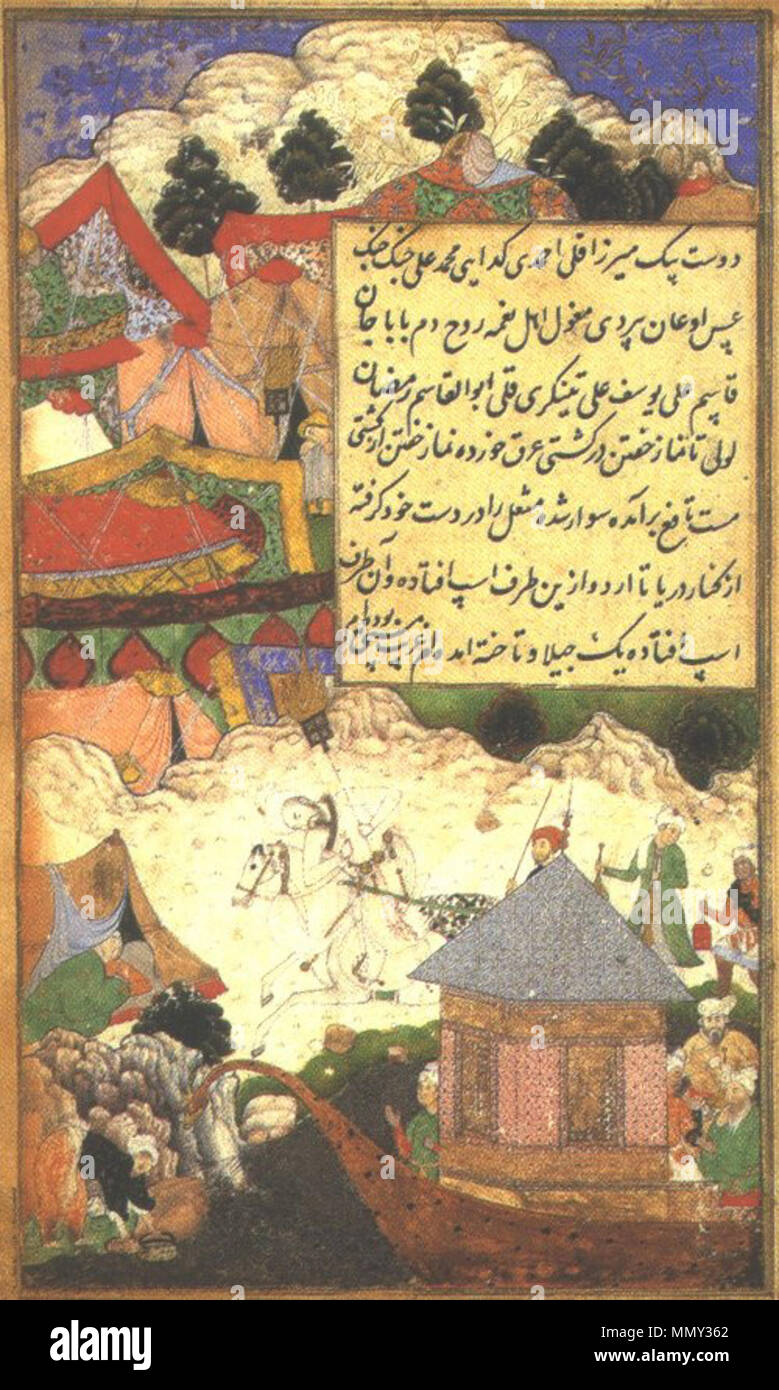 دوست بیک میرزا قلی احمدی کدایی محمد علی جنک جنک
عسس اوغان پردی مغول اهل نغمه روح دم بابا جان
قاسم علی یوسف علی تینکری قلی ابوالقاسم رمضان
لولی تا نماز خفتن در کشتی عرق خورده نماز خفتن از کشتی
مست تافع برآمده سوار شده مشعل را در دست خود کرفته
از کنار دریا تا اردو از ین طرف اسپ افتاده و آن طرف
اسپ افتاده یک جیلاو تاخته آمده ام غریب مستی بوده
alamy
Image ID: MMY362
www.alamy.com